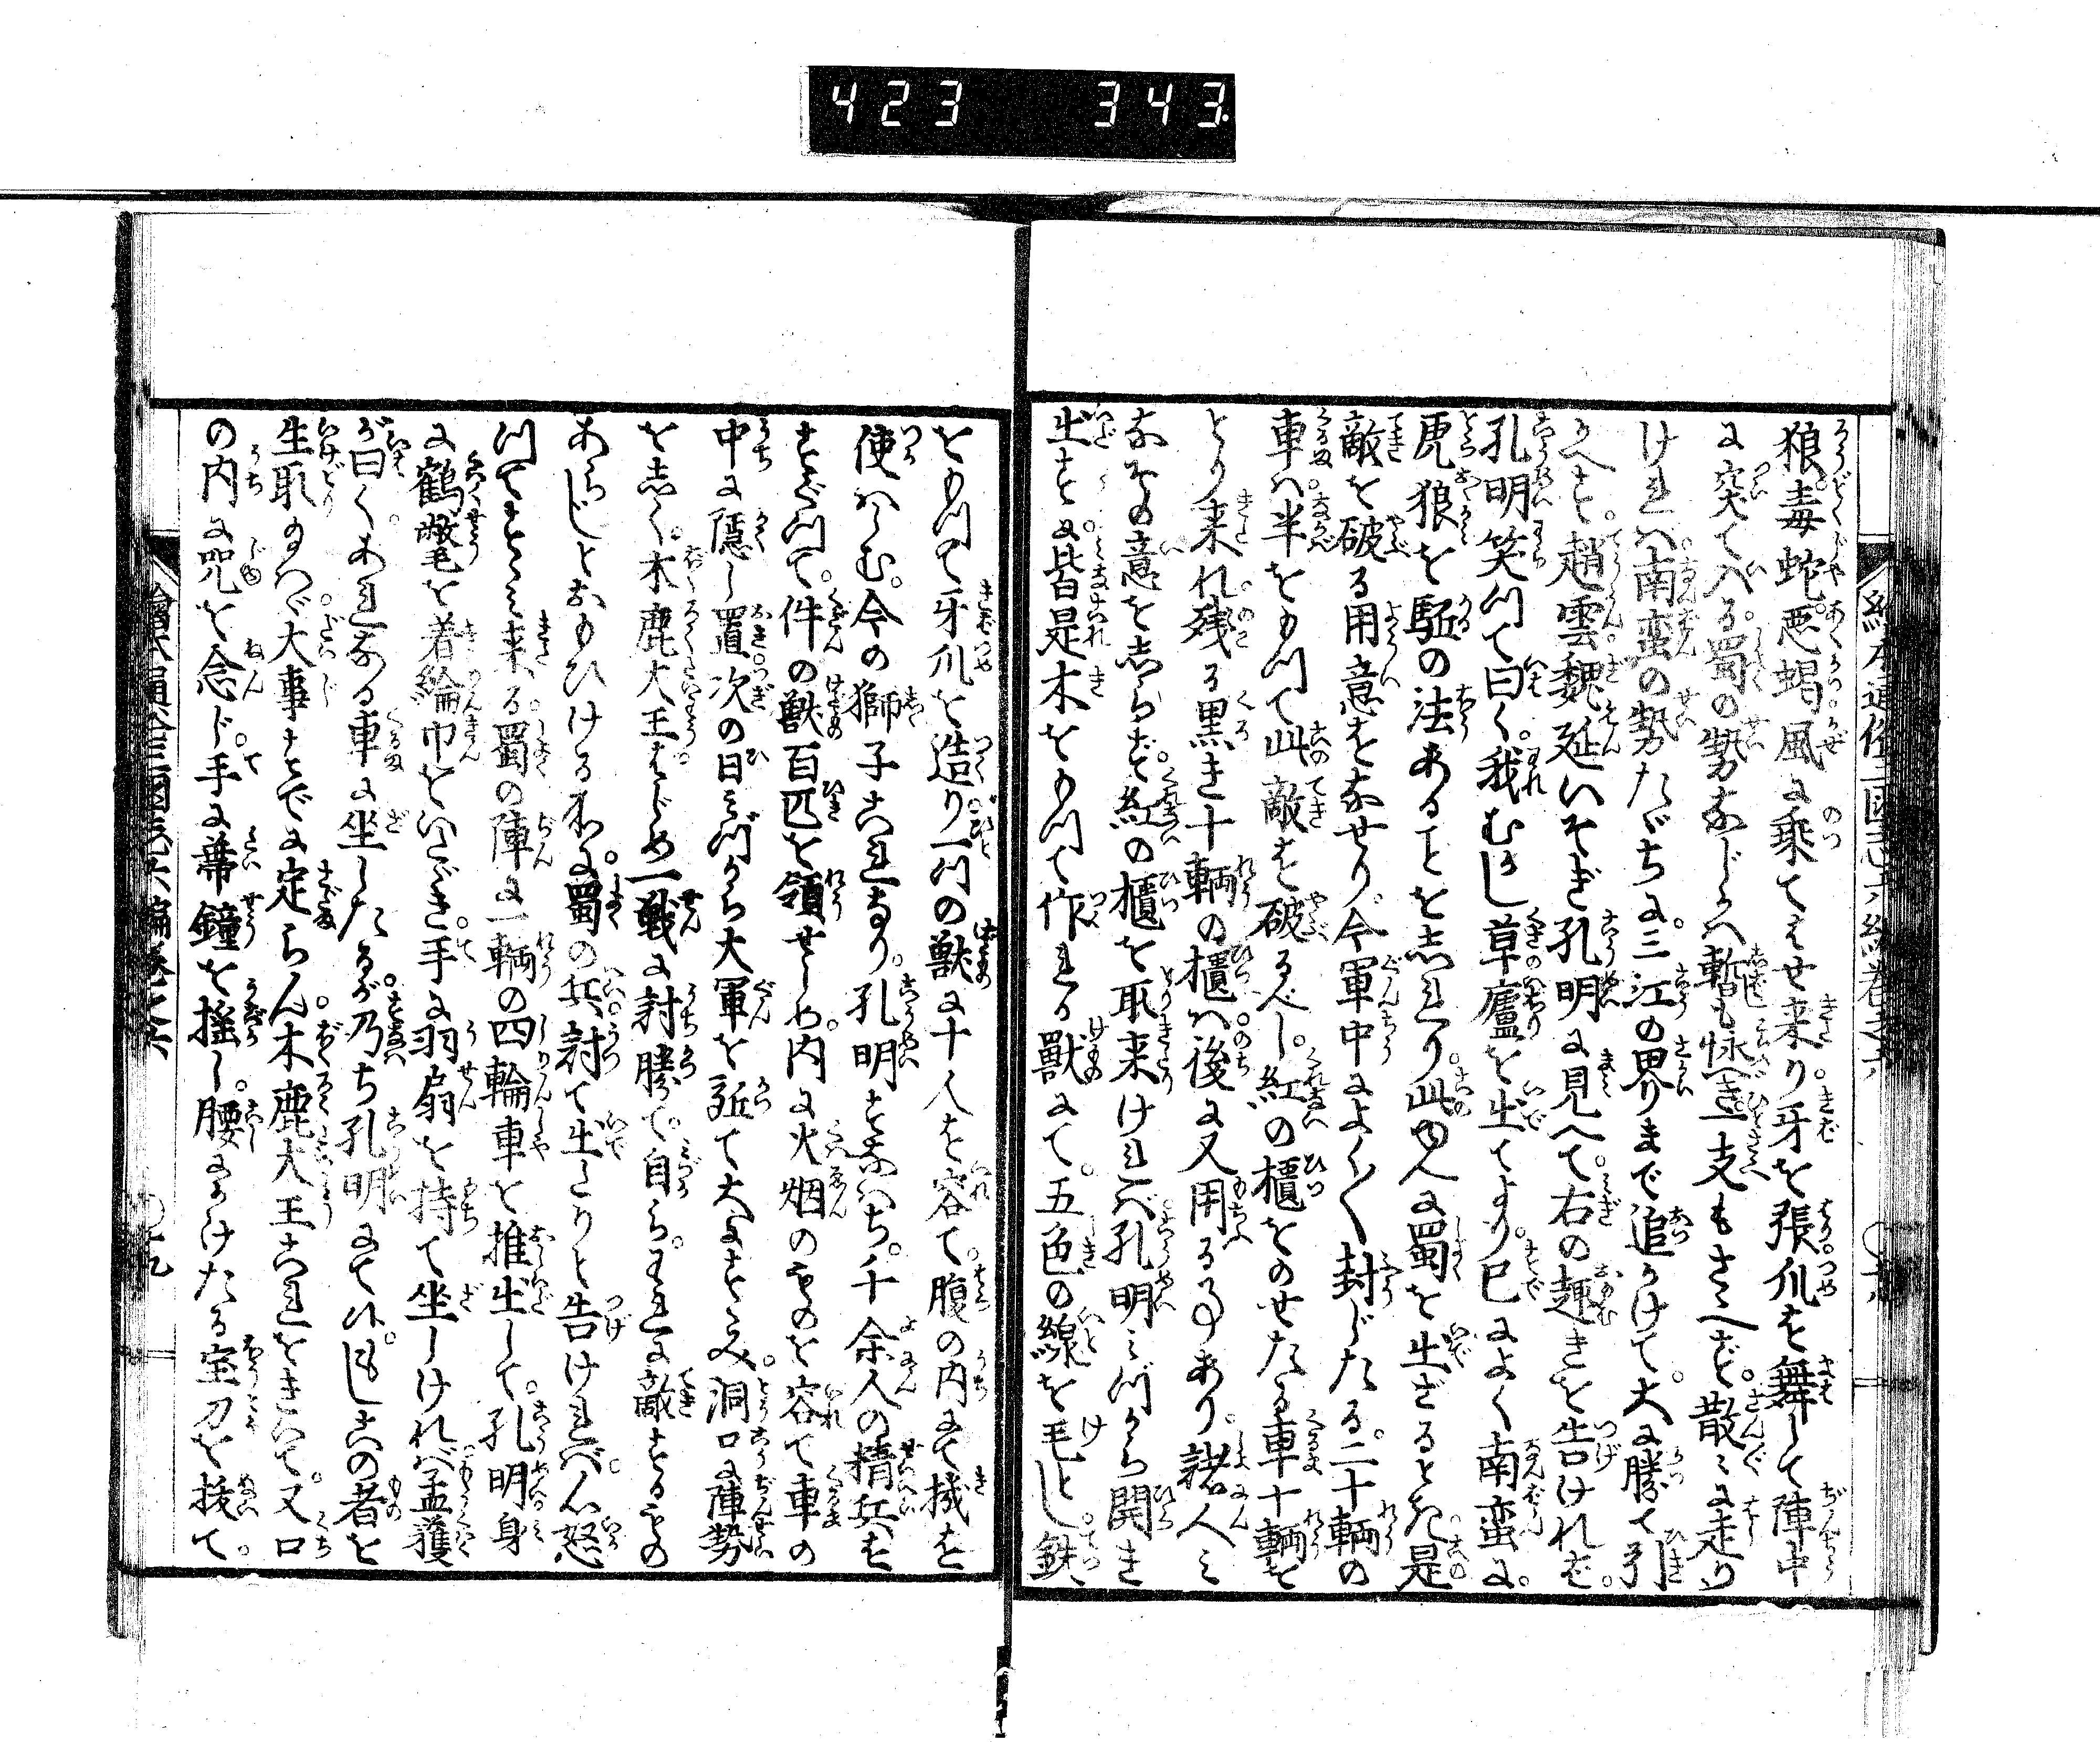 423 343
狼毒蛇悪蝎風に乗てはせ来り牙を張爪を舞して陣中
に突て入る蜀の勢なじかは暫も怺べき一支もさゝへず散〻に走り
ければ南蛮の勢たゞちに三江の界まで追かけて大に勝て引
かへす趙雲魏延いそぎ孔明に見へて右の趣きを告ければ
孔明笑つて曰く我むかし草廬を出てより已によく南蛮に
虎狼を駈の法あることを志れり此ゆへに蜀を出ざるとき是
敵を破る用意をなせり今軍中によく〳〵封じたる二十輌の
車は半をもつて此敵を破るべし紅の櫃をのせたる車十輌を
とり来れ残る黒き十輌の櫃は後に又用る事あり諸人み
なその意を志らず紅の櫃を取来ければ孔明みづから開き
出すに皆是木をもつて作れる獣にて五色の線を毛とし鉄
をもつて牙爪を造り一つの獣に十人を容て腹の内にて機を
使はしむ今の獅子これなり孔明すなはち千余人の精兵を
すぐつて件の獣百匹を領せしめ内に火烟のものを容て車の
中に隠し置次の日みづから大軍を駈て大にすゝみ洞口に陣勢
を志く木鹿大王はじめ一戦に討勝て自らわれに敵するもの
あらじとおもひける所に蜀の兵討て出たりと告ければ心怒
つてすゝみ来る蜀の陣に一輌の四輪車を推出して孔明身
に鶴氅を着綸巾をいたゞき手に羽扇を持て坐しければ孟獲
が曰くあれなる車に坐したるが乃ち孔明にて候もしこの者を
生取給はゞ大事すでに定らん木鹿大王これをきいて又口
の内に咒を念じ手に蔕鐘を揺し腰にかけたる宝刀を抜て